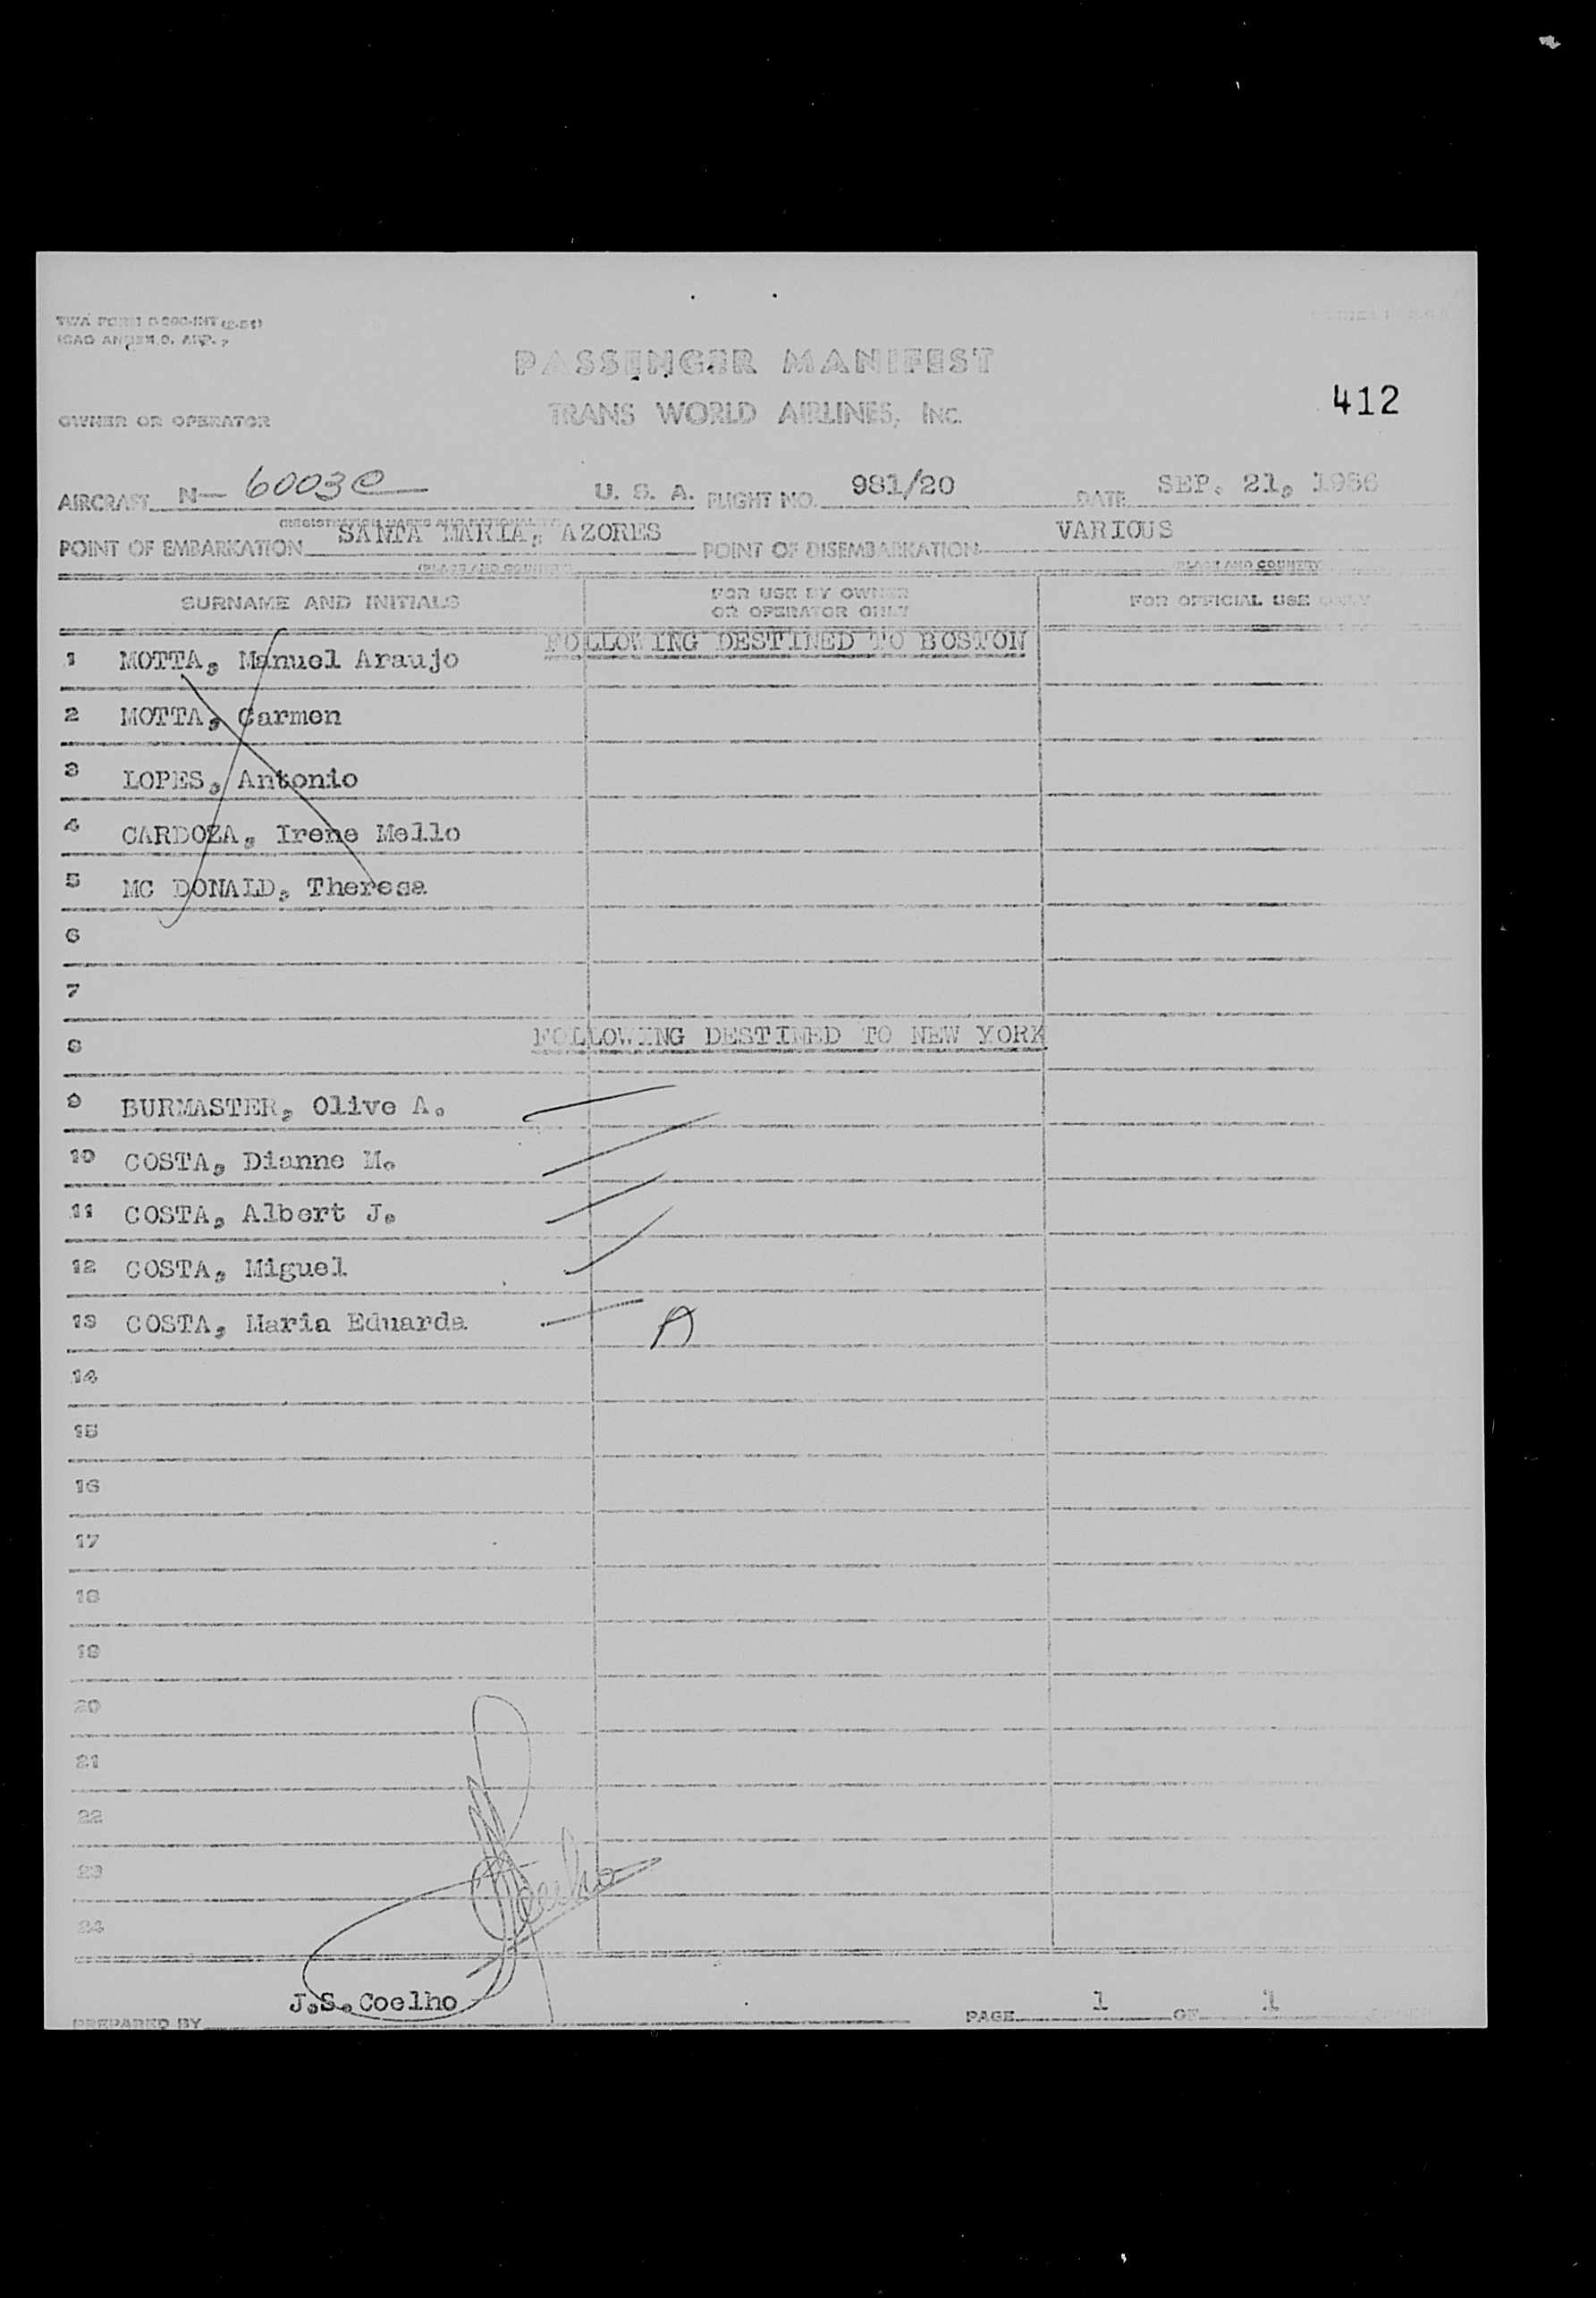 TWA FORM
ICAO ANNEX 9, APP.
PASSENGER MANIFEST
412
OWNER OR OPERATOR TRANS WORLD AIRLINES, INC.
AIRCRAFT N- 6003C U. S. A. FLIGHT NO. 981/20 DATE SEP. 21, 1956
(REGISTRATION MARKS AND NATIONALITY)
POINT OF EMBARKATION SANTA MARIA, AZORES POINT OF DISEMBARKATION VARIOUS
(PLACE AND COUNTRY) (PLACE AND COUNTRY)
SURNAME AND INITIALS FOR USE BY OWNER OR OPERATOR ONLY FOR OFFICIAL USE ONLY
FOLLOWING DESTINED TO BOSTON
1 MOTTA, Manuel Araujo
2 MOTTA, Carmen
3 LOPES, Antonio
4 CARDOZA, Irene Mello
5 MC DONALD, Theresa
6
7
FOLLOWING DESTINED TO NEW YORK
8
9 BURMASTER, Olive A.
10 COSTA, Dianne M.
11 COSTA, Albert J.
12 COSTA, Miguel
13 COSTA, Maria Eduarda
14
15
16
17
18
19
20
21
22
23
24
Coelho
PREPARED BY J.S.Coelho PAGE 1 OF 1